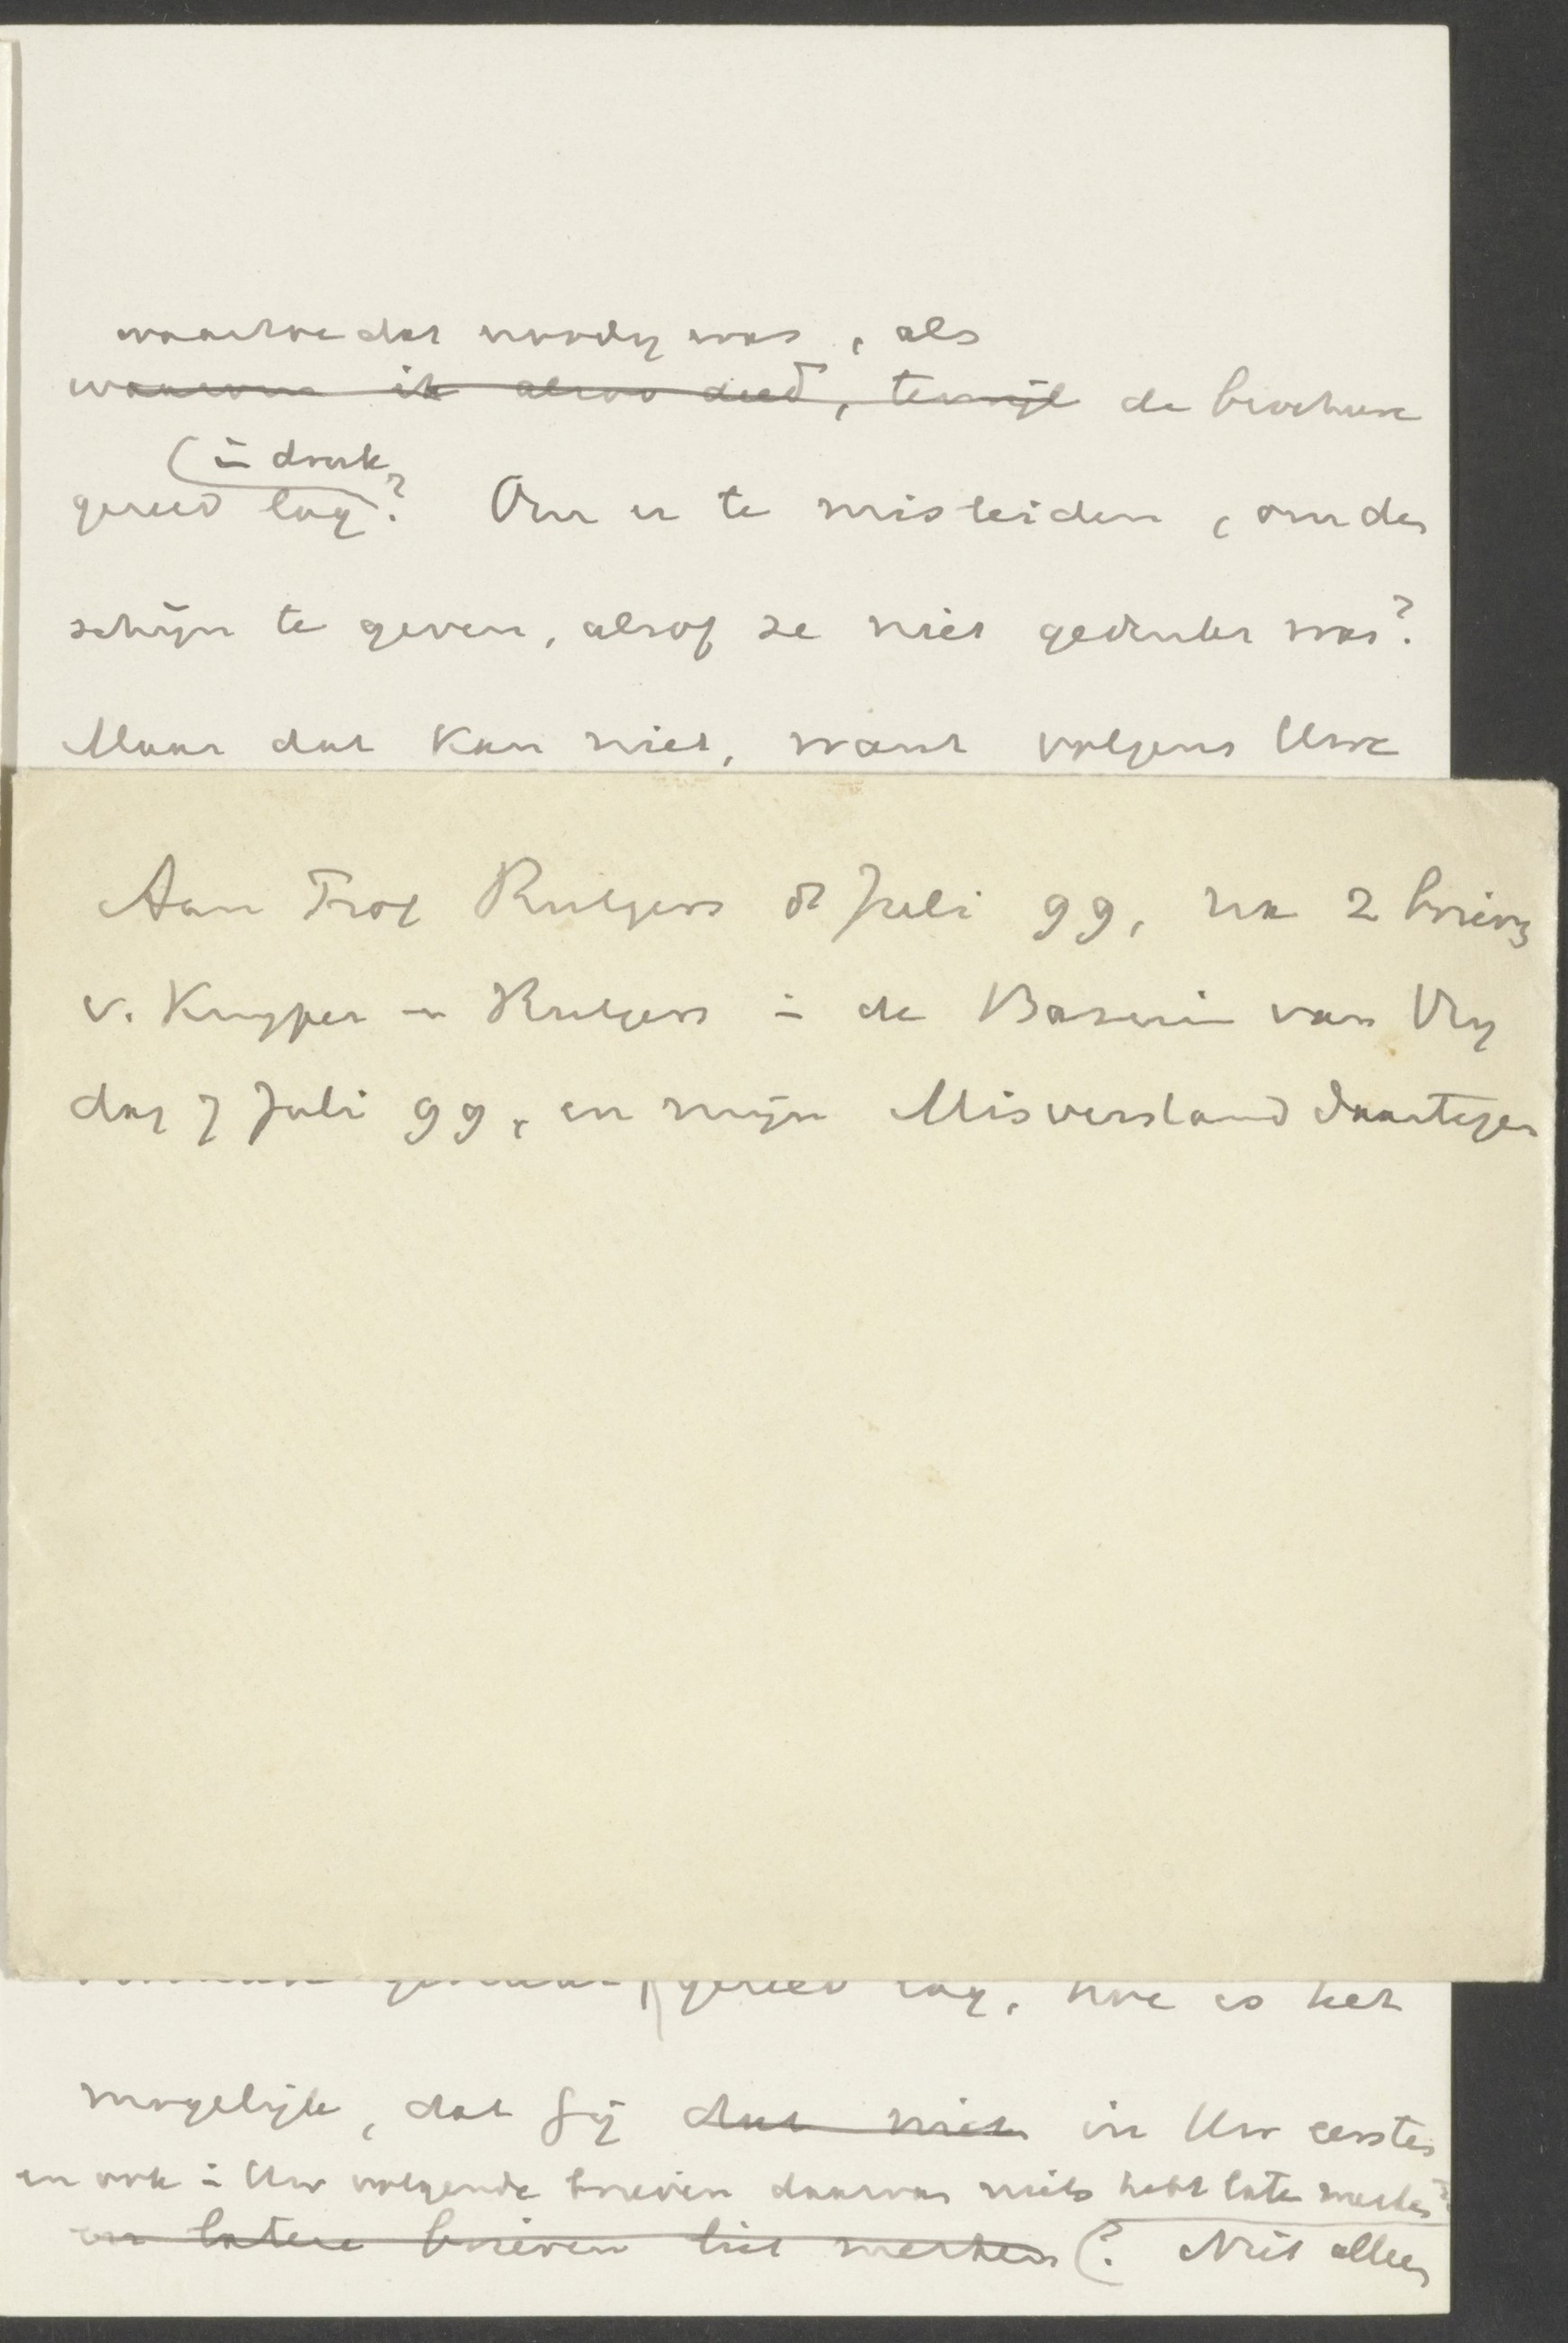 waartoe dat noodig was, als
waarom ik alzoo deed, terwijl de brochure
(in druk
gereed lag? Om u te misleiden, om den
schijn te geven, alsof ze niet gedrukt was?
Maar dat kan niet, want volgens Uwe
Aan Prof Rutgers 8 Juli 99, na 2 brieven
v. Kuyper en Rutgers in de Bazuin van Vrij
dag 7 Juli 99, en mijn Misverstand daartegen
gereed lag, hoe is het
mogelijk, dat Gij dat niet in Uw eersten
en ook in Uw volgende brieven daarvan niets hebt laten merken?
en latere brieven liet merken (? Niet alleen